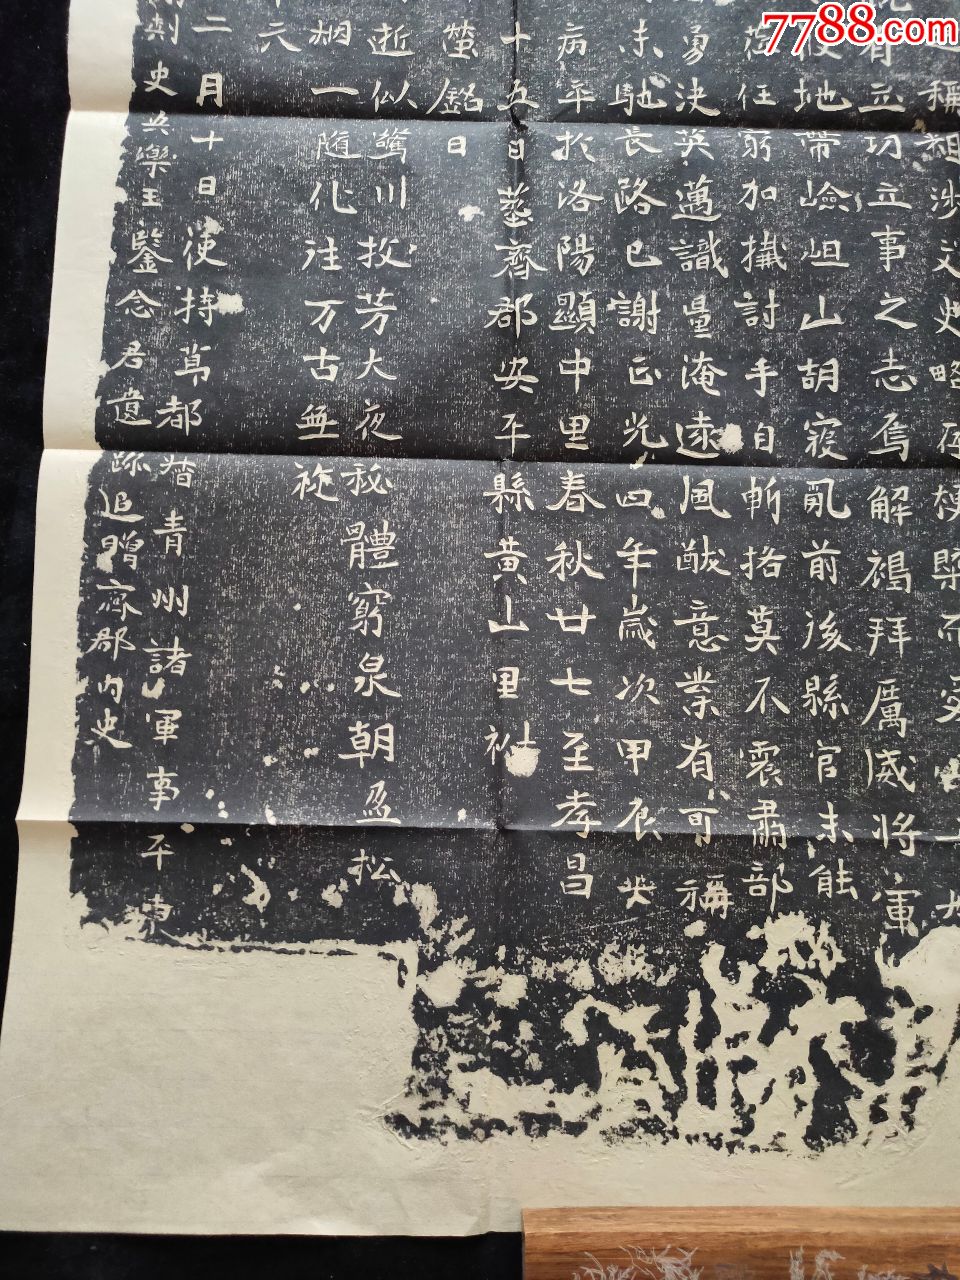 7788.com
稱祖涉文史略存梗槩而
有立功立事之志焉解褐拜厲威將軍
地帶嶮岨山胡寇亂前後縣官未能
任窮加擒討手自斬挌莫不震肅部
勇決英邁識量淹遠風猷意業有可稱
未馳長路已謝正光四年歲次甲辰
病卒於洛陽顯中里春秋廿七至孝昌
十五日葬齊郡安平縣黃山里
塋銘曰
逝似驚川投芳大夜秘體窮泉朝盈松
烟一隨化往万古無
元
二月十日使持莭都督青州諸軍事平東
刾史安樂王鑒念君遺跡追贈齊郡內史